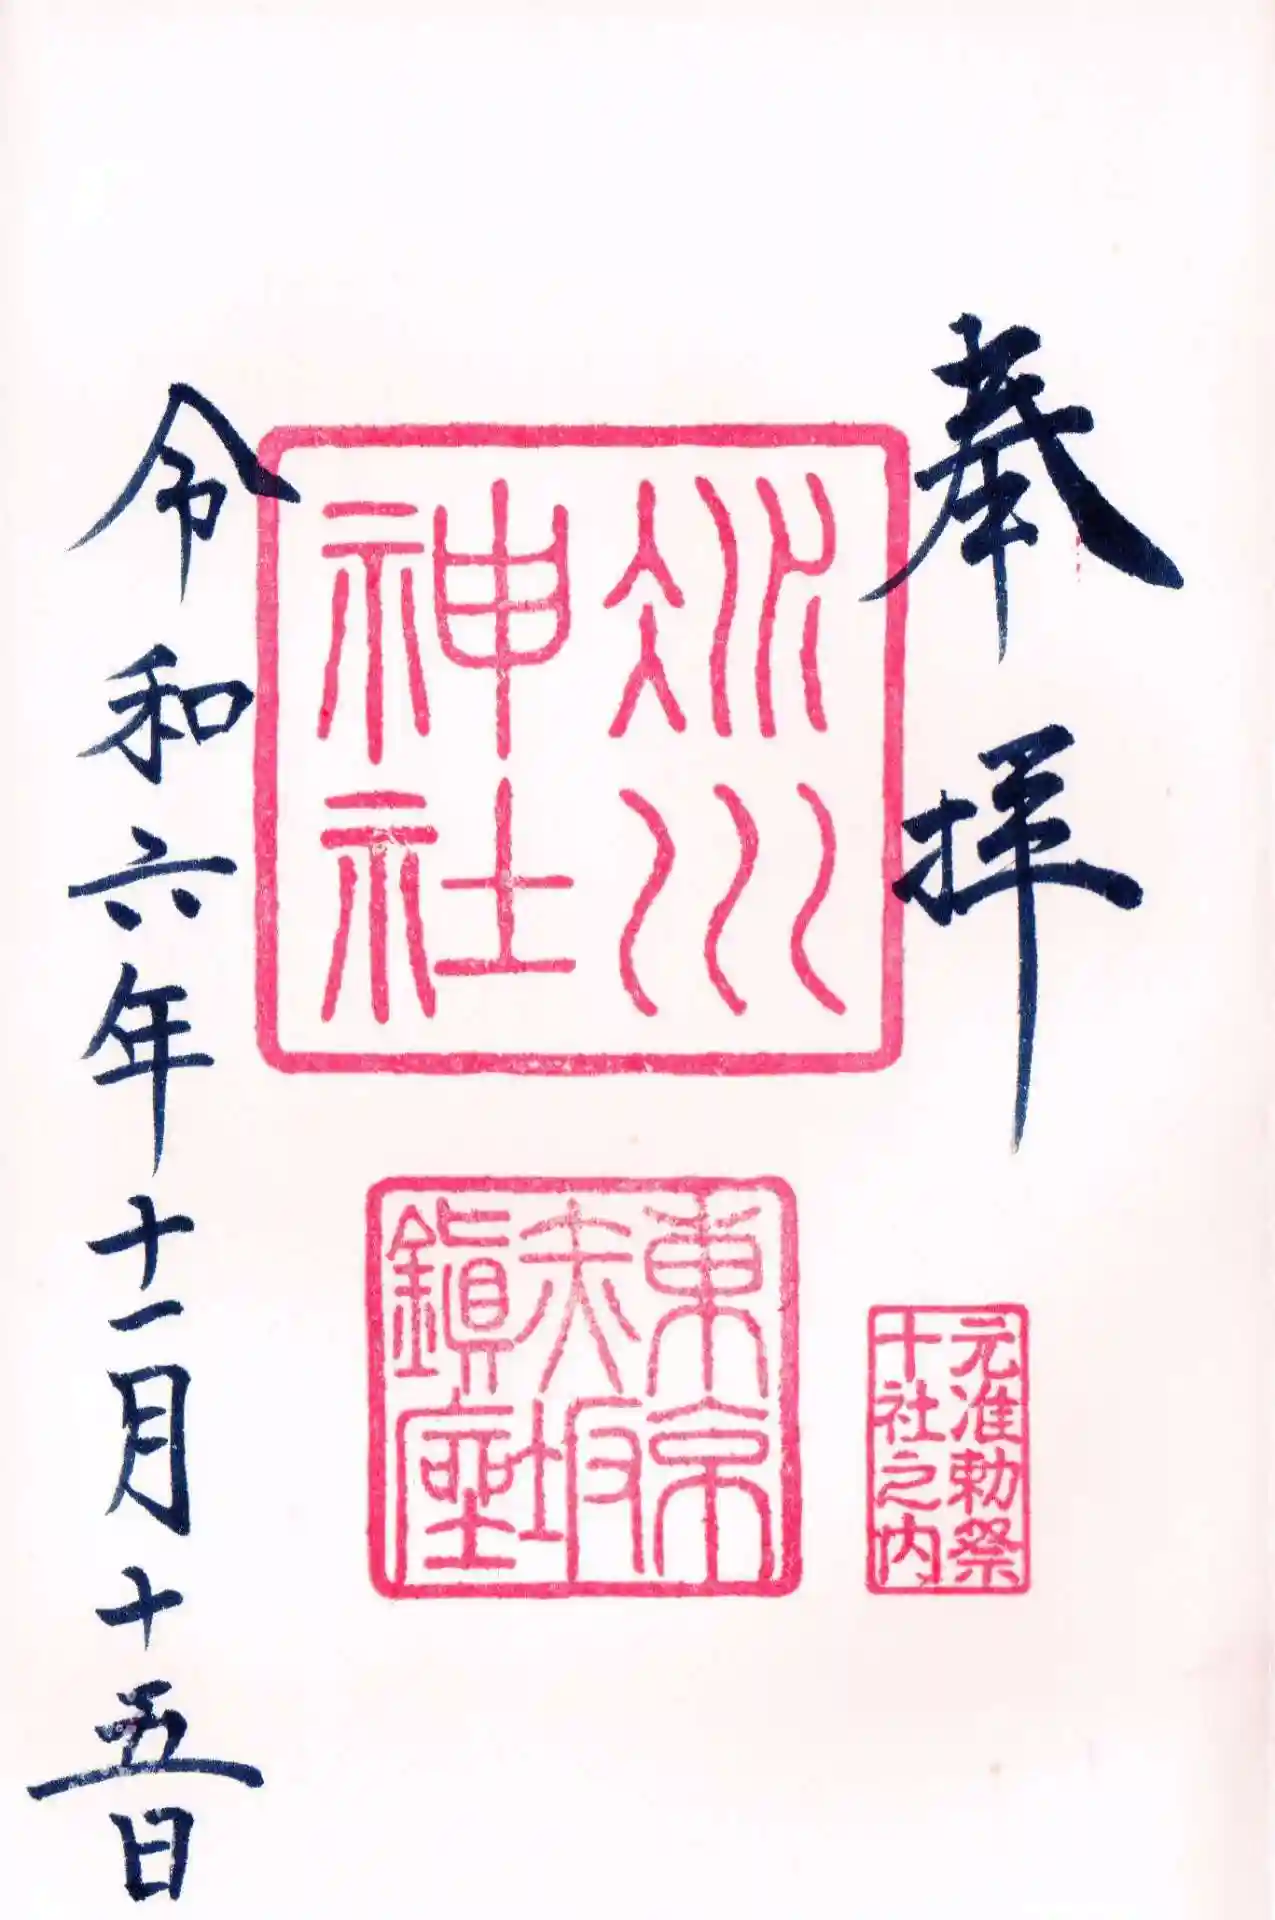 奉拝
元准勅祭
十社之内
氷川
神社
東京
赤坂
鎮座
令和六年十一月十五日